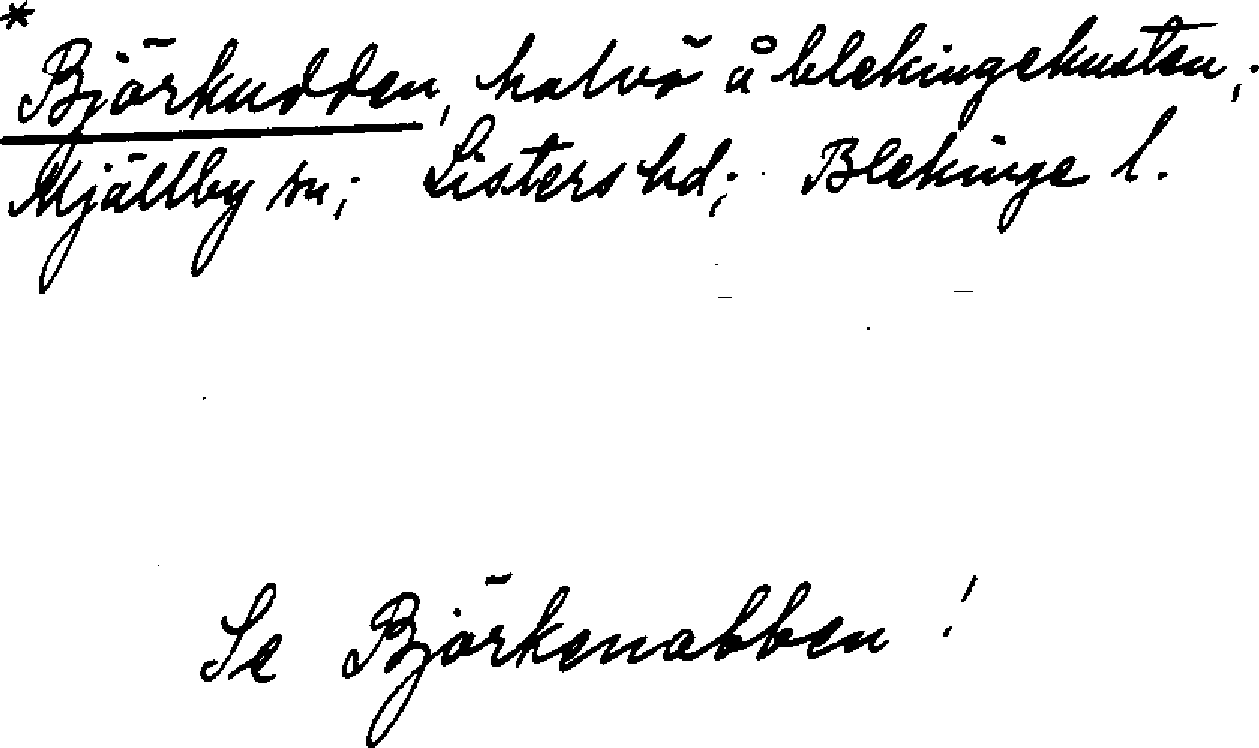 * Björkudden, halvö å blekingekusten;
Mjällby sn; Listers hd; Blekinge l.
Se Björkenabben!